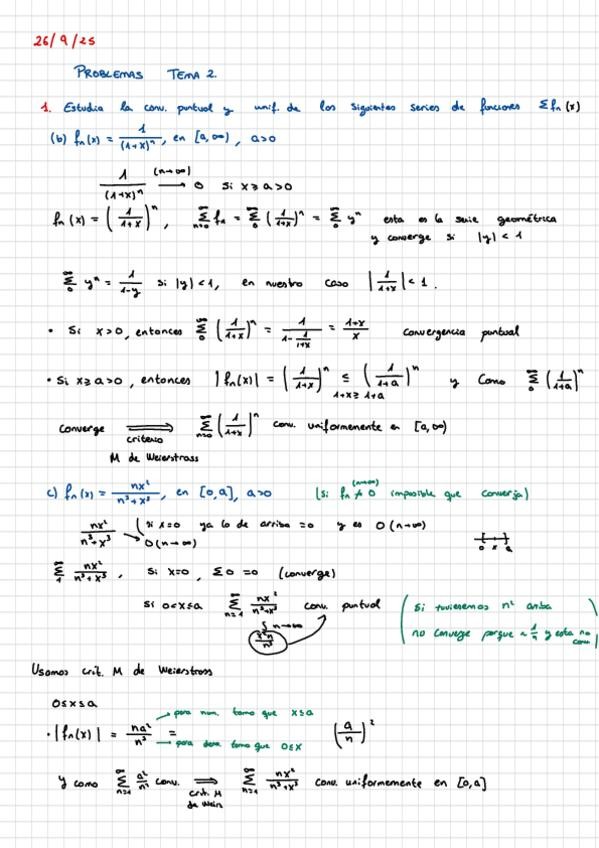 26/9/25
PROBLEMAS TEMA 2.
1. Estudia la conv. puntual y unif. de los siguientes series de funciones Σfn(x)
(b) fn(x) = 1/(1+x)^n, en [a,∞), a>0
1/(1+x)^n →(n→∞) 0 si x≥a>0
fn(x) = (1/(1+x))^n, Σ_{n=0}^∞ fn = Σ_0^∞ (1/(1+x))^n = Σ_0^∞ y^n esta es la serie geométrica
y converge si |y|<1
Σ_0^∞ y^n = 1/(1-y) si |y|<1, en nuestro caso |1/(1+x)|<1.
• Si x>0, entonces Σ_0^∞ (1/(1+x))^n = 1/(1-1/(1+x)) = (1+x)/x convergencia puntual
• Si x≥a>0, entonces |fn(x)| = (1/(1+x))^n ≤ (1/(1+a))^n y como Σ_0^∞ (1/(1+a))^n
1+x≥1+a
converge ⟹ Σ_{n=0}^∞ (1/(1+x))^n conv. uniformemente en [a,∞)
criterio
M de Weierstrass
c) fn(x) = nx²/(n³+x³), en [0,a], a>0 (si fn ↛ 0 (n→∞) imposible que converja)
nx²/(n³+x³) (si x=0 ya lo de arriba =0 y es 0 (n→∞)
→ 0 (n→∞)
0 x a
Σ_1^∞ nx²/(n³+x³), si x=0, Σ0 = 0 (converge)
si 0<x≤a Σ_{n=1}^∞ nx²/(n³+x³) conv. puntual
(si tuviéramos n² arriba
no converge porque ~ 1/n y esta no conv.)
n→∞
x²n/n³
Usamos crit. M de Weierstrass
0≤x≤a
→ para num. tomo que x≤a
• |fn(x)| = na²/n³ = (a/n)²
→ para deno. tomo que 0≤x
y como Σ_{n=1}^∞ a²/n² conv. ⟹ Σ_{n=1}^∞ nx²/(n³+x³) conv. uniformemente en [0,a]
crit. M
de Weir.